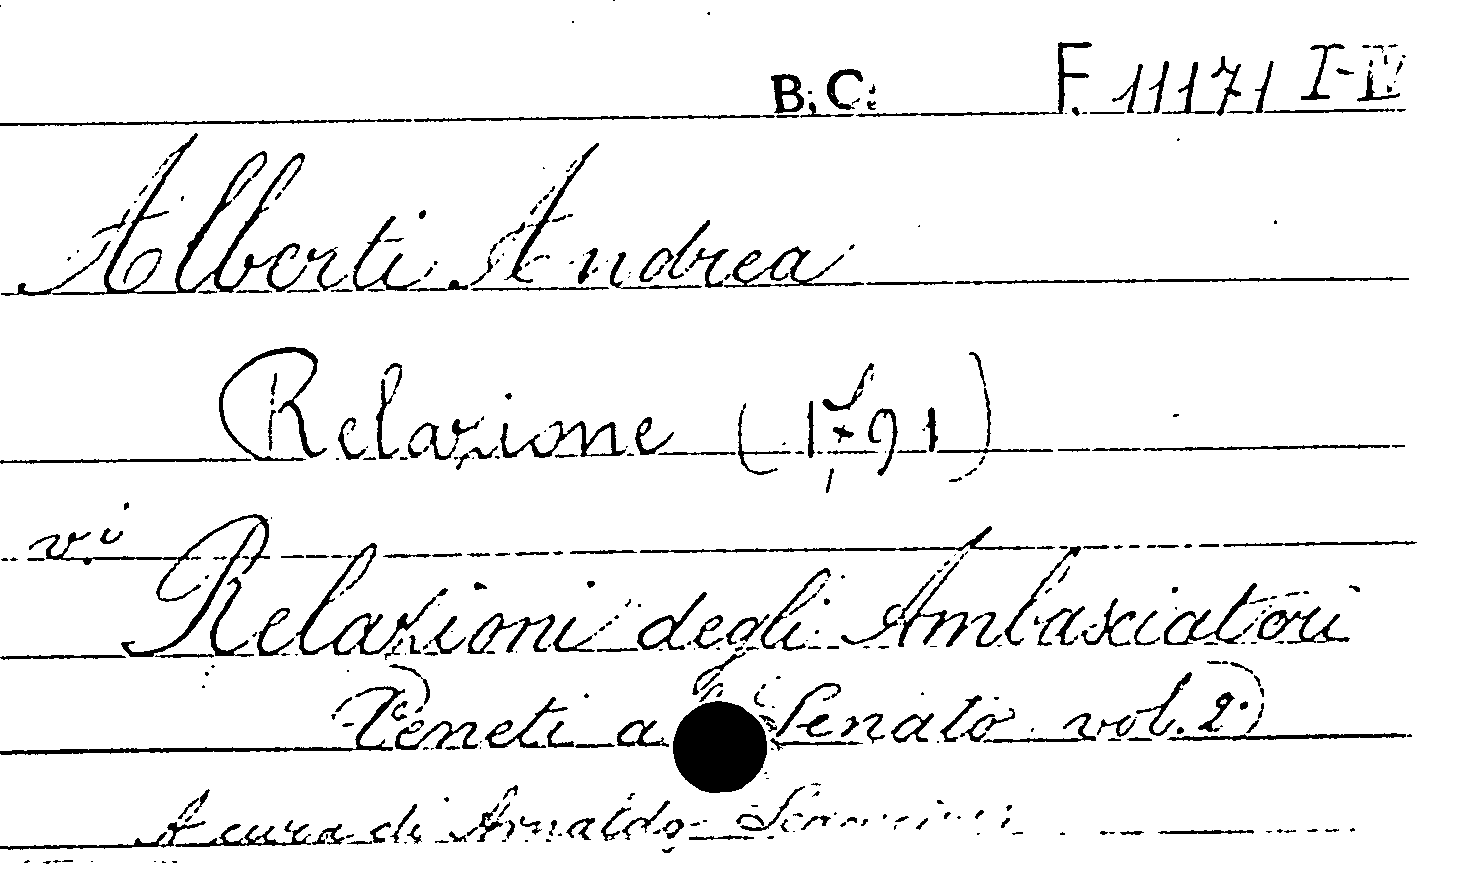 B. C. F. 11171 I-IV
Alberti Andrea
Relazione (1791)
v. i
Relazioni degli Ambasciatori
Veneti a Senato vol. 2°)
A cura di Arnaldo